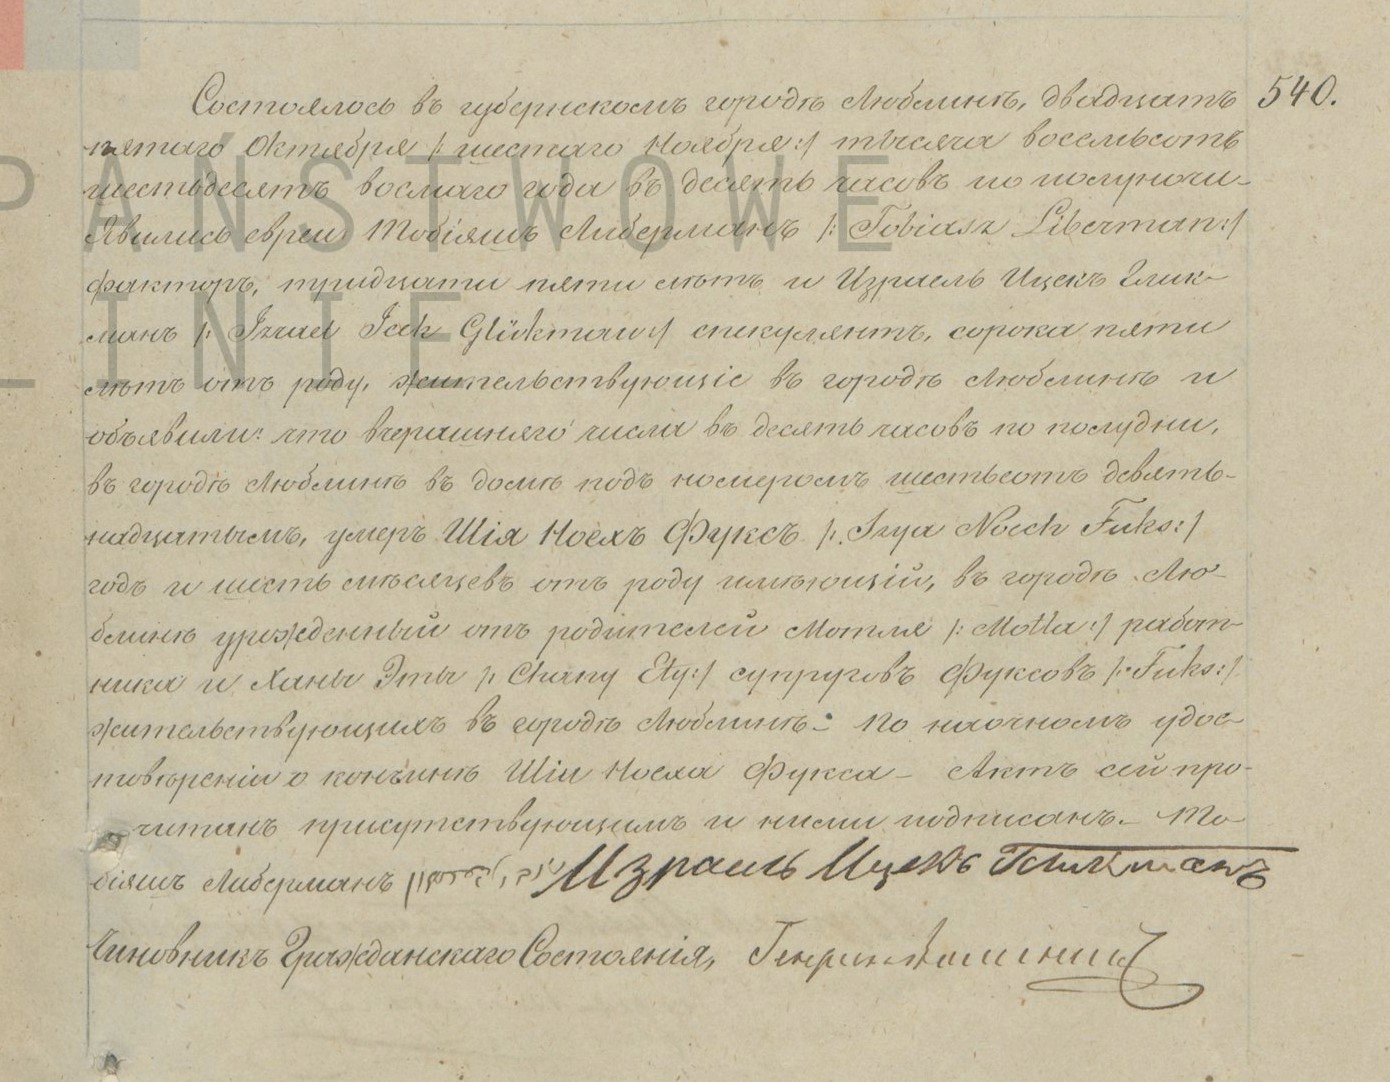 Состоялось въ губернскомъ городѣ Люблинѣ, двадцать 540.
пятаго Октября /: шестаго Ноября :/ тысяча восемьсотъ
шестьдесятъ восмаго года въ десять часовъ по полуночи –
PAŃSTWOWE
Явились евреи Тобіяшъ Либерманъ /: Tobiasz Liberman :/
факторъ, тридцати пяти лѣтъ и Израель Ицекъ Глик-
манъ /: Izrael Icek Glükman :/ спекулянтъ, сорока пяти
лѣтъ отъ роду, жительствующіе въ городѣ Люблинѣ и
объявили: что вчерашняго числа въ десять часовъ по полудни,
въ городѣ Люблинѣ въ домѣ подъ номеромъ шестьсотъ девять-
надцатымъ, умеръ Шія Ноехъ Фуксъ /: Szya Noech Fuks :/
годъ и шесть мѣсяцевъ отъ роду имѣющій, въ городѣ Лю-
блинѣ урожденный отъ родителей Мотля /: Motla :/ работ-
ника и Ханы Эты /: Chany Ety :/ супруговъ Фуксовъ /: Fuks :/
жительствующихъ въ городѣ Люблинѣ – По наочномъ удос-
товѣреніи о кончинѣ Шіи Ноеха Фукса – Актъ сей про-
читанъ присутствующимъ и ними подписанъ. – То-
біяшъ Либерманъ Израель Ицекъ Гликманъ
Чиновникъ Гражданскаго Состоянія,